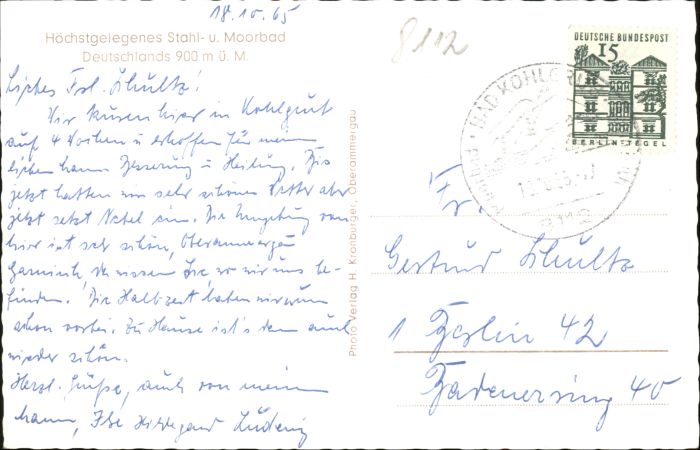 18.10.65
Höchstgelegenes Stahl- u. Moorbad
Deutschlands 900 m ü. M.
Liebes Frl. Schultz!
Wir kuren hier in Kohlgrub
auf 4 Wochen u. erhoffen für meinen
lieben Mann Besserung u. Heilung. Bis
jetzt hatten wir sehr schönes Wetter aber
jetzt setzt Nebel ein. Die Umgebung von
hier ist sehr schön, Oberammergau
Garmisch, da wissen Sie wo wir uns be-
finden. Die Halbzeit haben wir nun
schon vorbei. Zu Hause ist's dann auch
wieder schön.
Herzl. Grüße, auch von meinem
Mann, Ihre Hildegard
Photo Verlag H. Kronburger, Oberammergau
8112
DEUTSCHE BUNDESPOST
15
BERLIN-TEGEL
BAD KOHLGRUB
8112
Frl.
Gertrud Schultz
1 Berlin 42
Badenerring 40